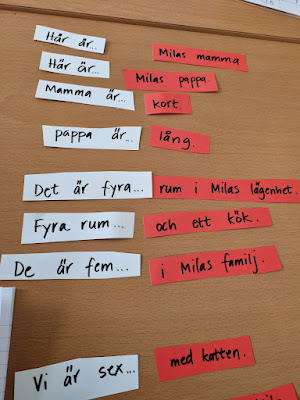 Här är... Milas mamma
Här är... Milas pappa.
Mamma är... kort
pappa är... lång.
Det är fyra... rum i Milas lägenhet.
Fyra rum... och ett kök.
De är fem... i Milas familj.
Vi är sex... med katten.